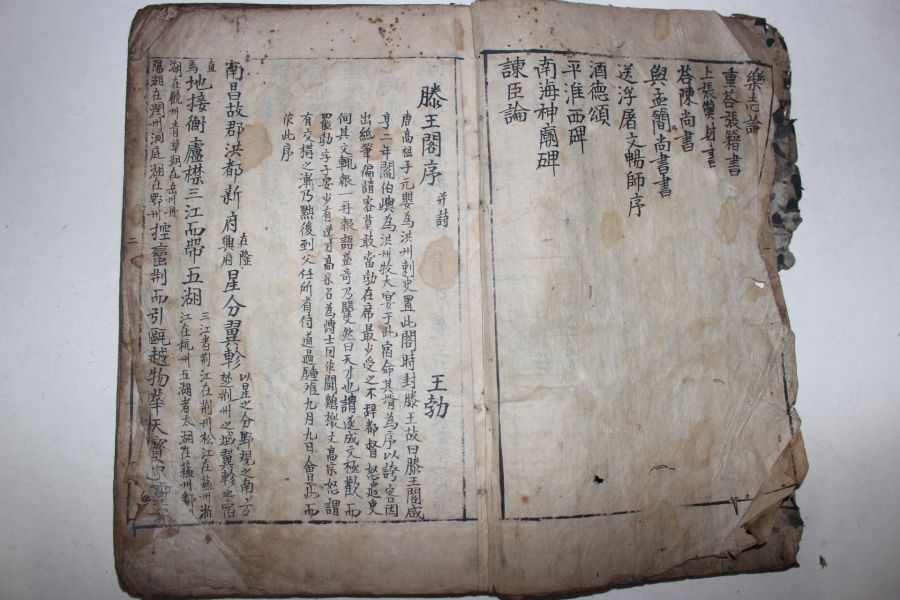 樂志論
重答張籍書
上張僕射書
答陳尚書
與孟簡尚書書
送浮屠文暢師序
酒德頌
平淮西碑
南海神廟碑
諫臣論
滕王閣序 并詩 王勃
唐高祖子元嬰為洪州刺史置此閣時封滕王故曰滕王閣咸
亨二年閻伯嶼為洪州牧大宴于此宿命其壻為序以誇客因
出紙筆徧請客莫敢當勃在席最少受之不辞都督怒遣吏
伺其文輒報一再報語益奇乃矍然曰天才也請遂成文極歡而
罷勃字子安少有逸才高宗召為博士因作鬪鷄檄文高宗怒謂
有交搆之漸乃黜後到父任所省侍道過鍾陵九月九日會此而
作此序
南昌故郡洪都新府 在隆興府 星分翼軫 以星之分野視之南方
楚荊州之域翼軫之宿
直
地接衡廬襟三江而帶五湖 三江者荊江在荊州松江在蘇州浙
江在杭州五湖者太湖在蘇州鄱
陽湖在饒州青草湖在岳州丹
陽湖在潤州洞庭湖在鄂州 控蠻荊而引甌越物華天寶